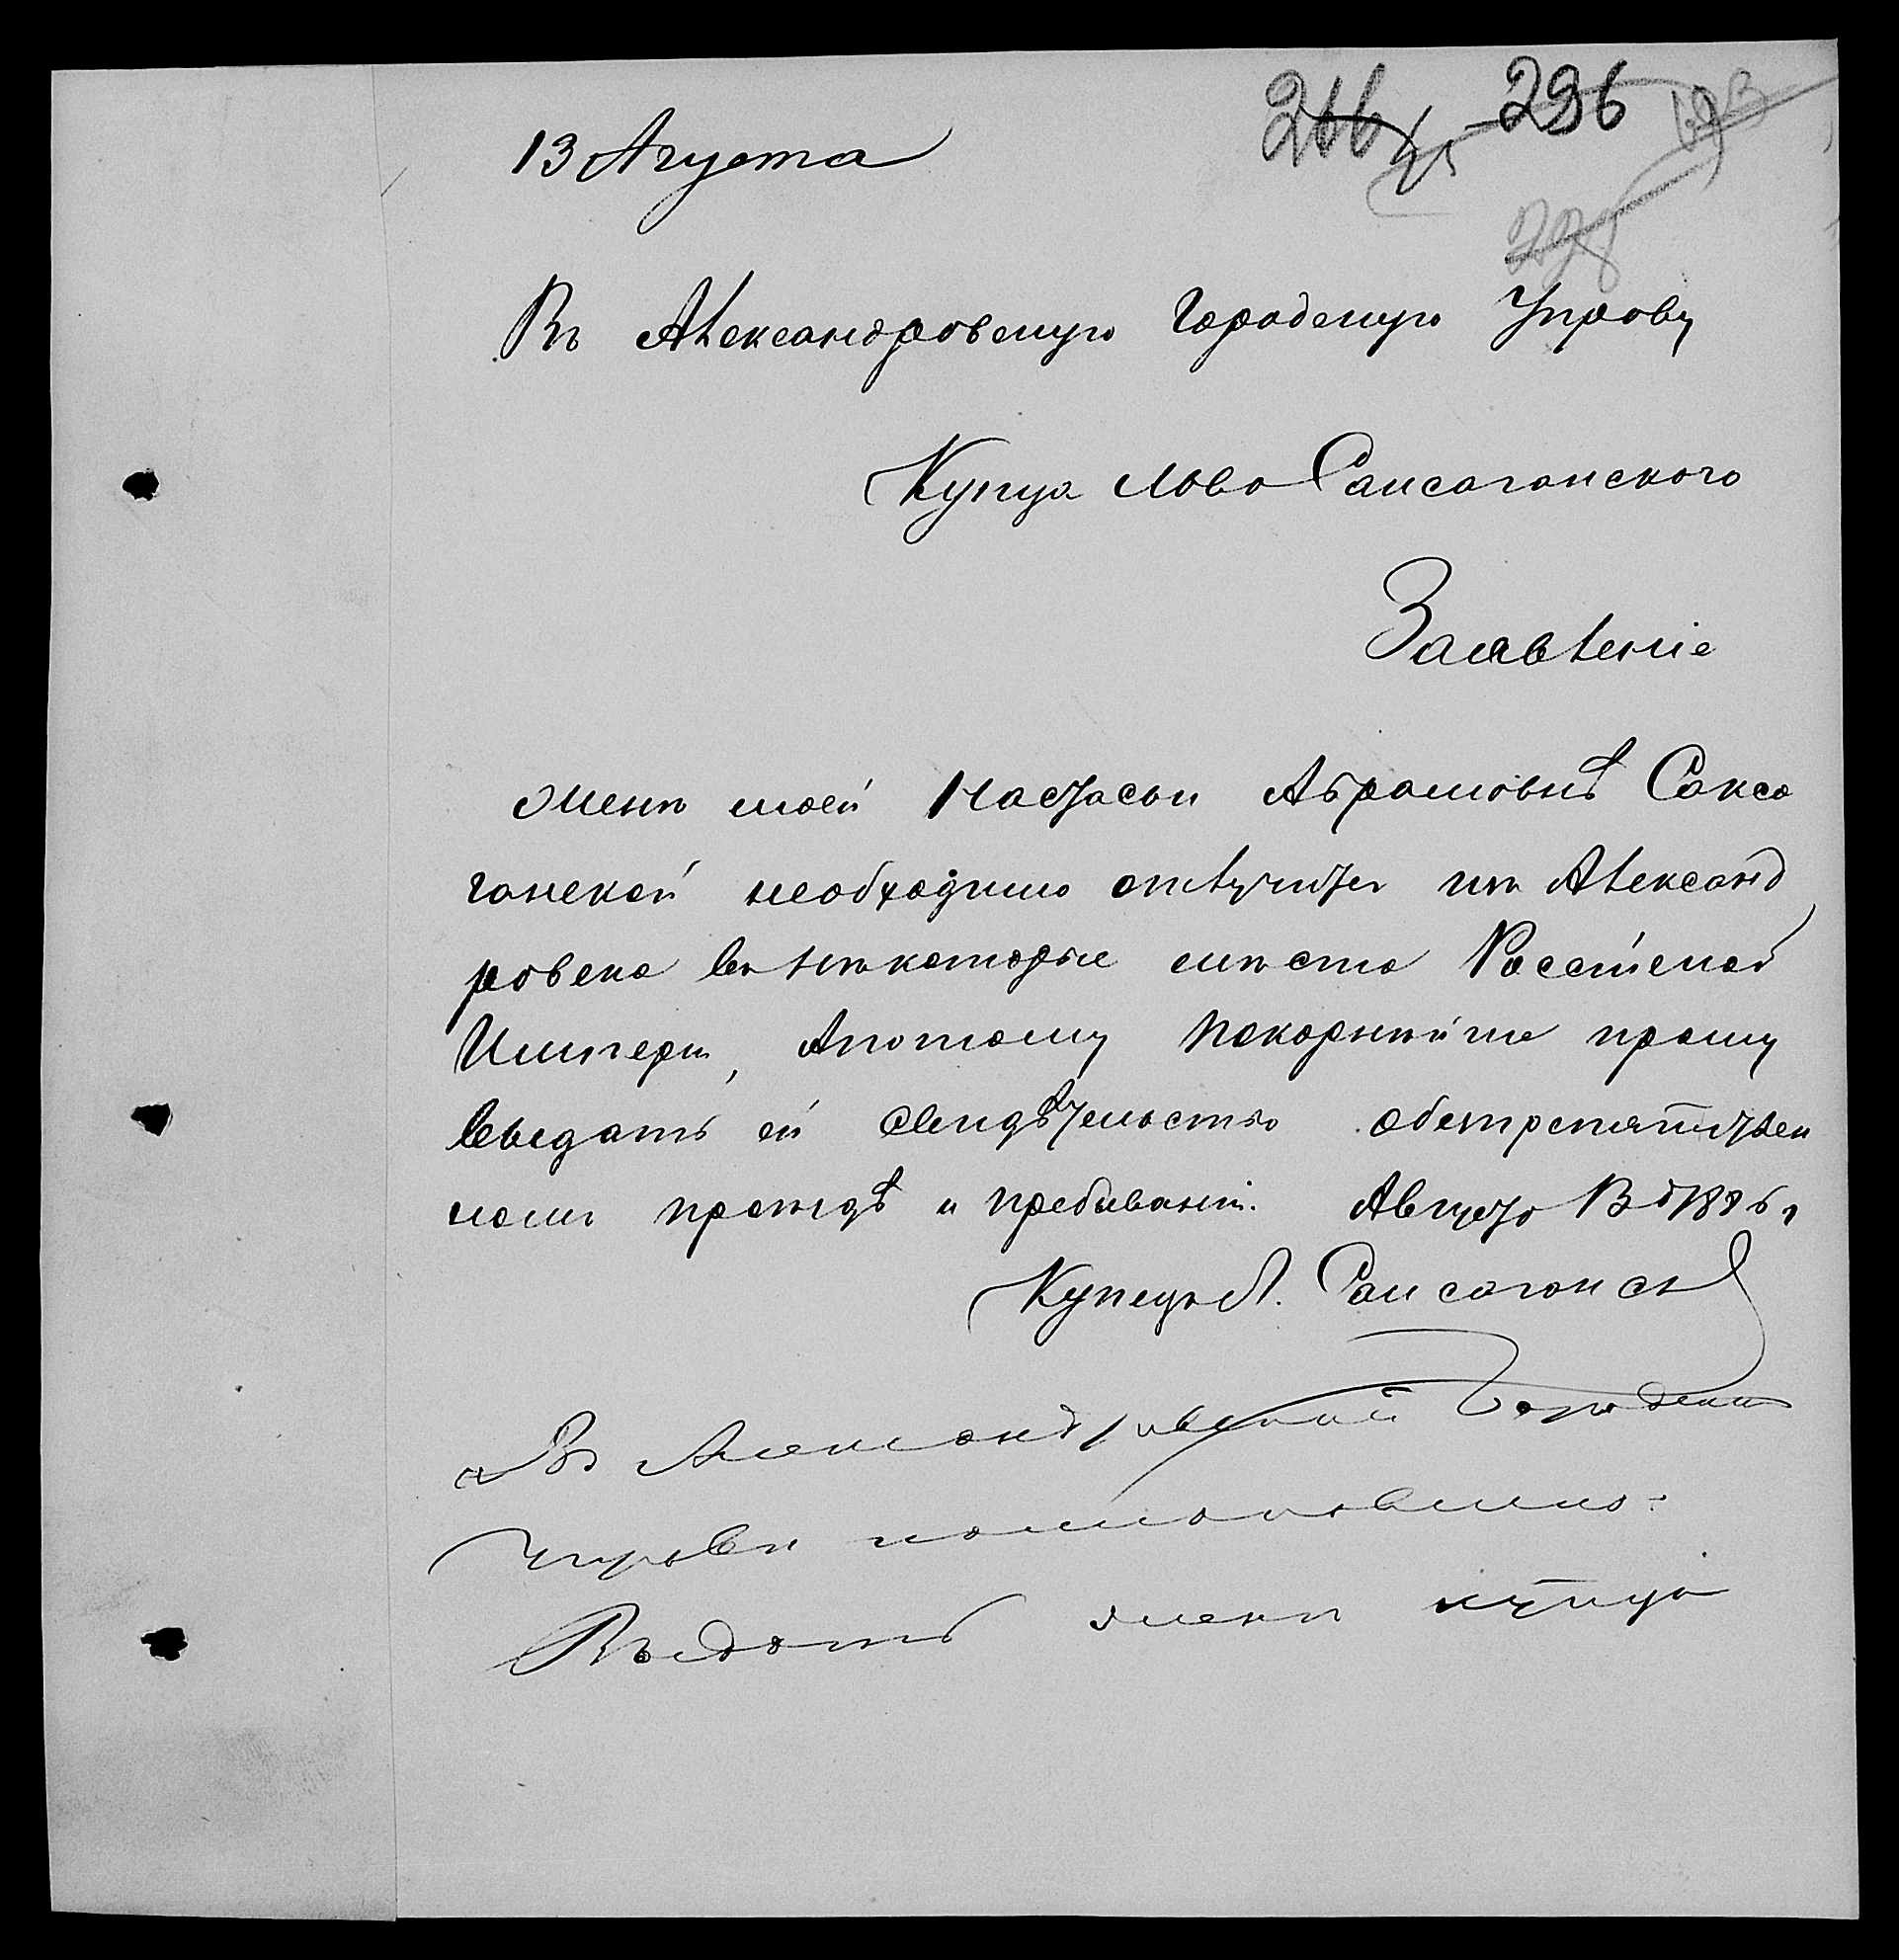 296
13 Агуста
Въ Александровскую Городскую Управу
Купца Льва Саксаганского
Заявленіе
Жени моей Настасьи Абрамовнѣ Сакса
ганской необходимо отлучится из Александ
ровска въ некоторые места Россійской
Империи, Апотому Покорнейше прошу
выдать ей Свидѣтельство обезпрепятствен
ном проездѣ и пребывании. Августа 13 д 1886 г
Купецъ Л. Саксаганск
Въ Александровской Городской
Управи постановлено:
Выдать жени купца